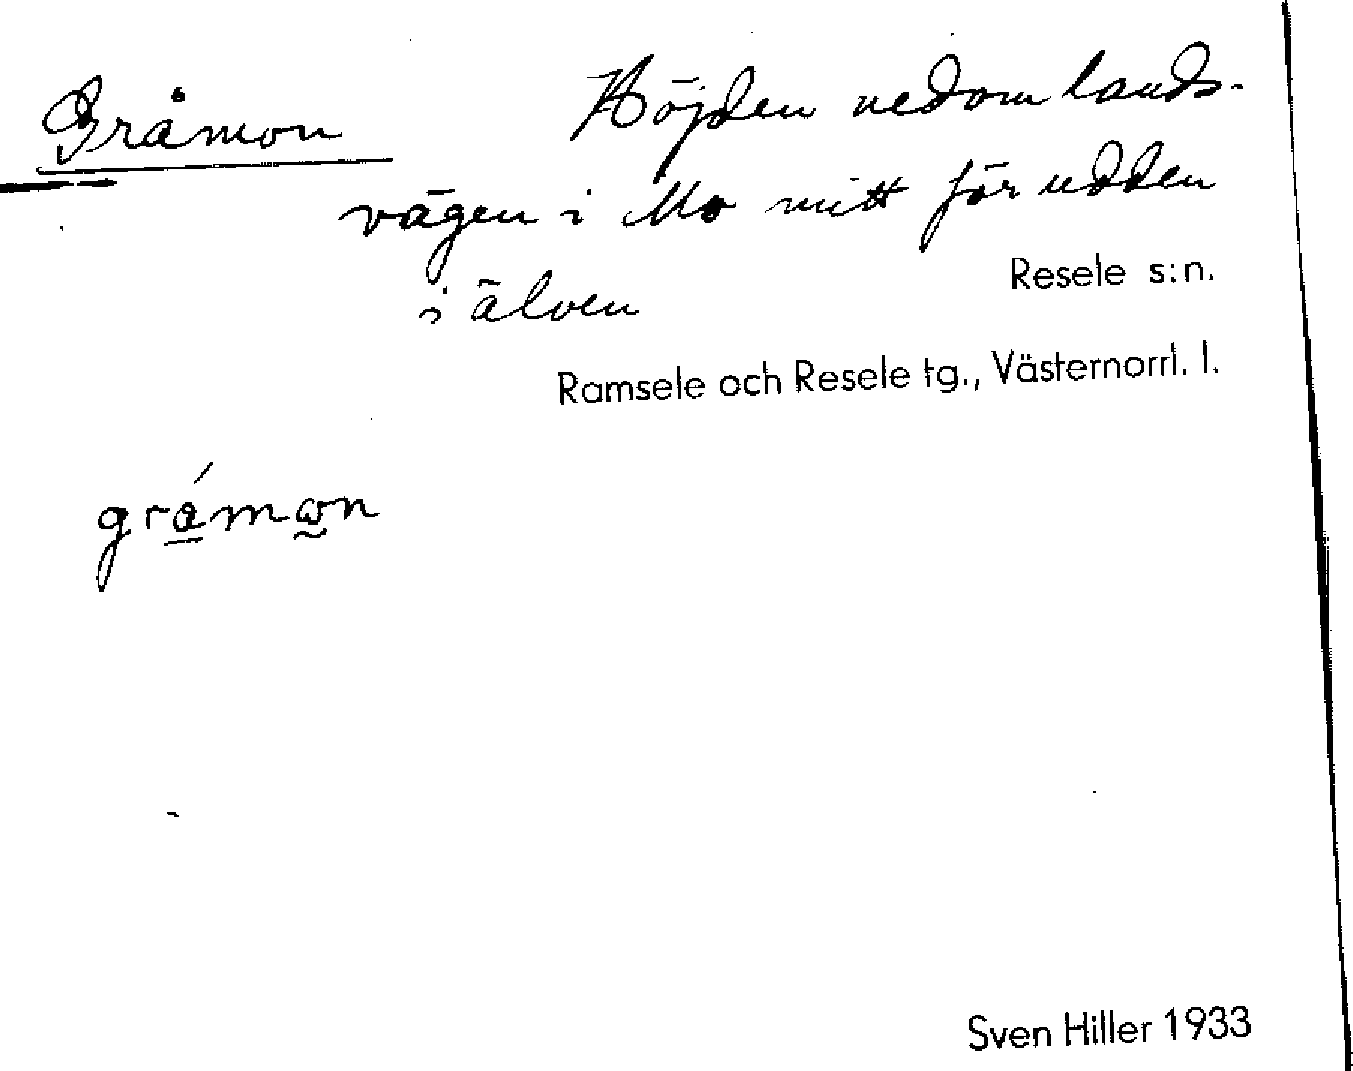 Gråmon
Höjden nedom lands-
vägen i Mo mitt för udden
i älven
Resele s:n.
Ramsele och Resele tg., Västernorrl. l.
Sven Hiller 1933